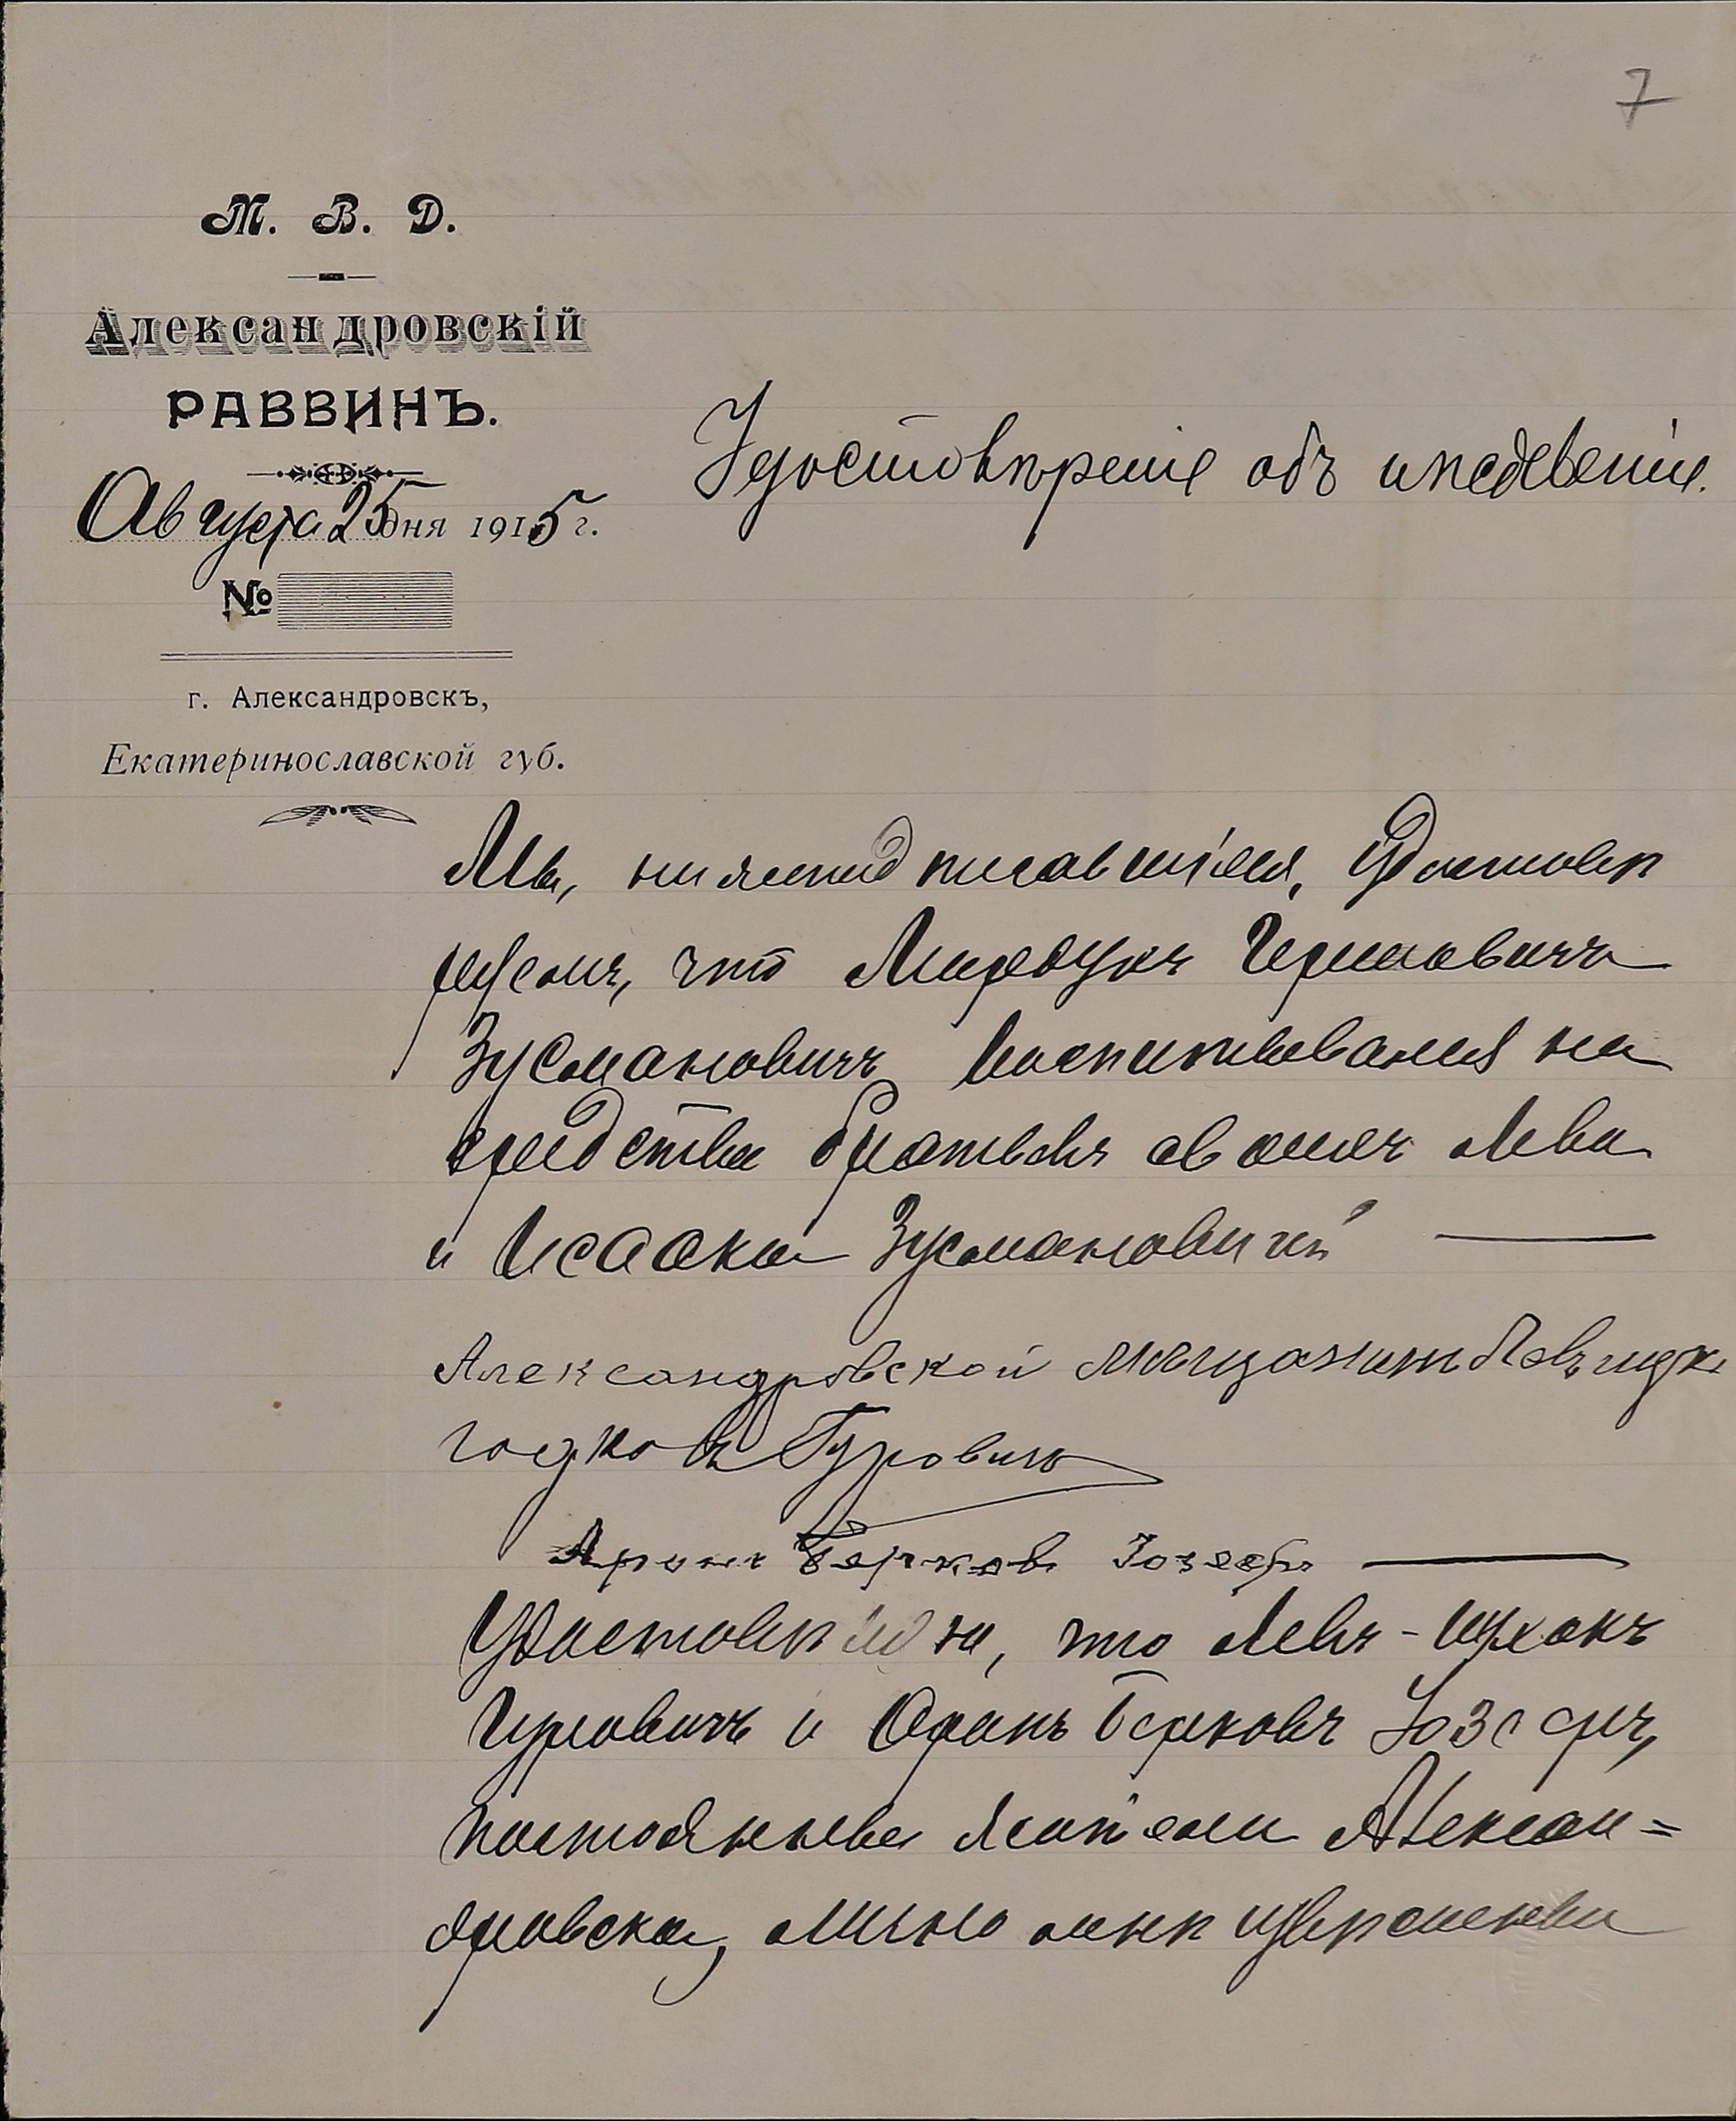 7
М. В. Д.
Александровскій
РАВВИНЪ.
Августа 25 дня 1915 г.
№
г. Александровскъ,
Екатеринославской губ.
Удостовѣреніе объ
Мы, нижеподписавшіеся, удостовѣ
ряемъ, что
Зусмановичъ на
средства братьевъ своихъ Льва
и Исаака Зусмановичей
Александровской мѣщанинъ
Гуровичъ
Аронъ Берковъ Юзефъ
Удостовѣряю, что Левъ-Ицхокъ
Гуровичъ и Аронъ Берковъ Юзефъ,
постоянные жители Алексан=
дровска, лично мнѣ извѣстны